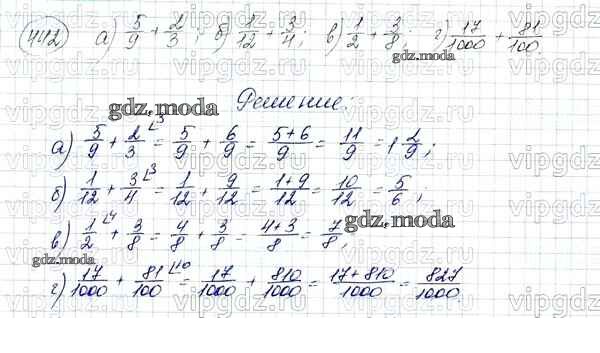 442) а) 5/9 + 2/3; б) 1/12 + 3/4; в) 1/2 + 3/8; г) 17/1000 + 81/100
Решение:
а) 5/9 + 2/3 ⌊3 = 5/9 + 6/9 = 5+6/9 = 11/9 = 1 2/9;
б) 1/12 + 3/4 ⌊3 = 1/12 + 9/12 = 1+9/12 = 10/12 = 5/6;
в) 1/2 ⌊4 + 3/8 = 4/8 + 3/8 = 4+3/8 = 7/8;
г) 17/1000 + 81/100 ⌊10 = 17/1000 + 810/1000 = 17+810/1000 = 827/1000
gdz.moda
gdz.moda
gdz.moda
gdz.moda
vipgdz.com